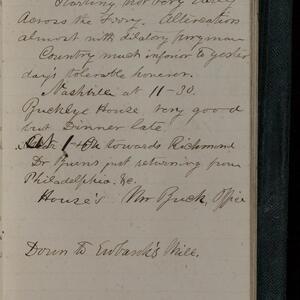 Starting not very early
Across the Ferry. Altercation
almost with dilatory
Country much inferior to yester
day's tolerable however.
Nashville at 11-30.
Buckley House very good
but Dinner late.
Oct 1 towards Richmond
Dr Burns just returning from
Philadelphia &c.
House's Mr Buck, Office
Down to Eubank's Mill.